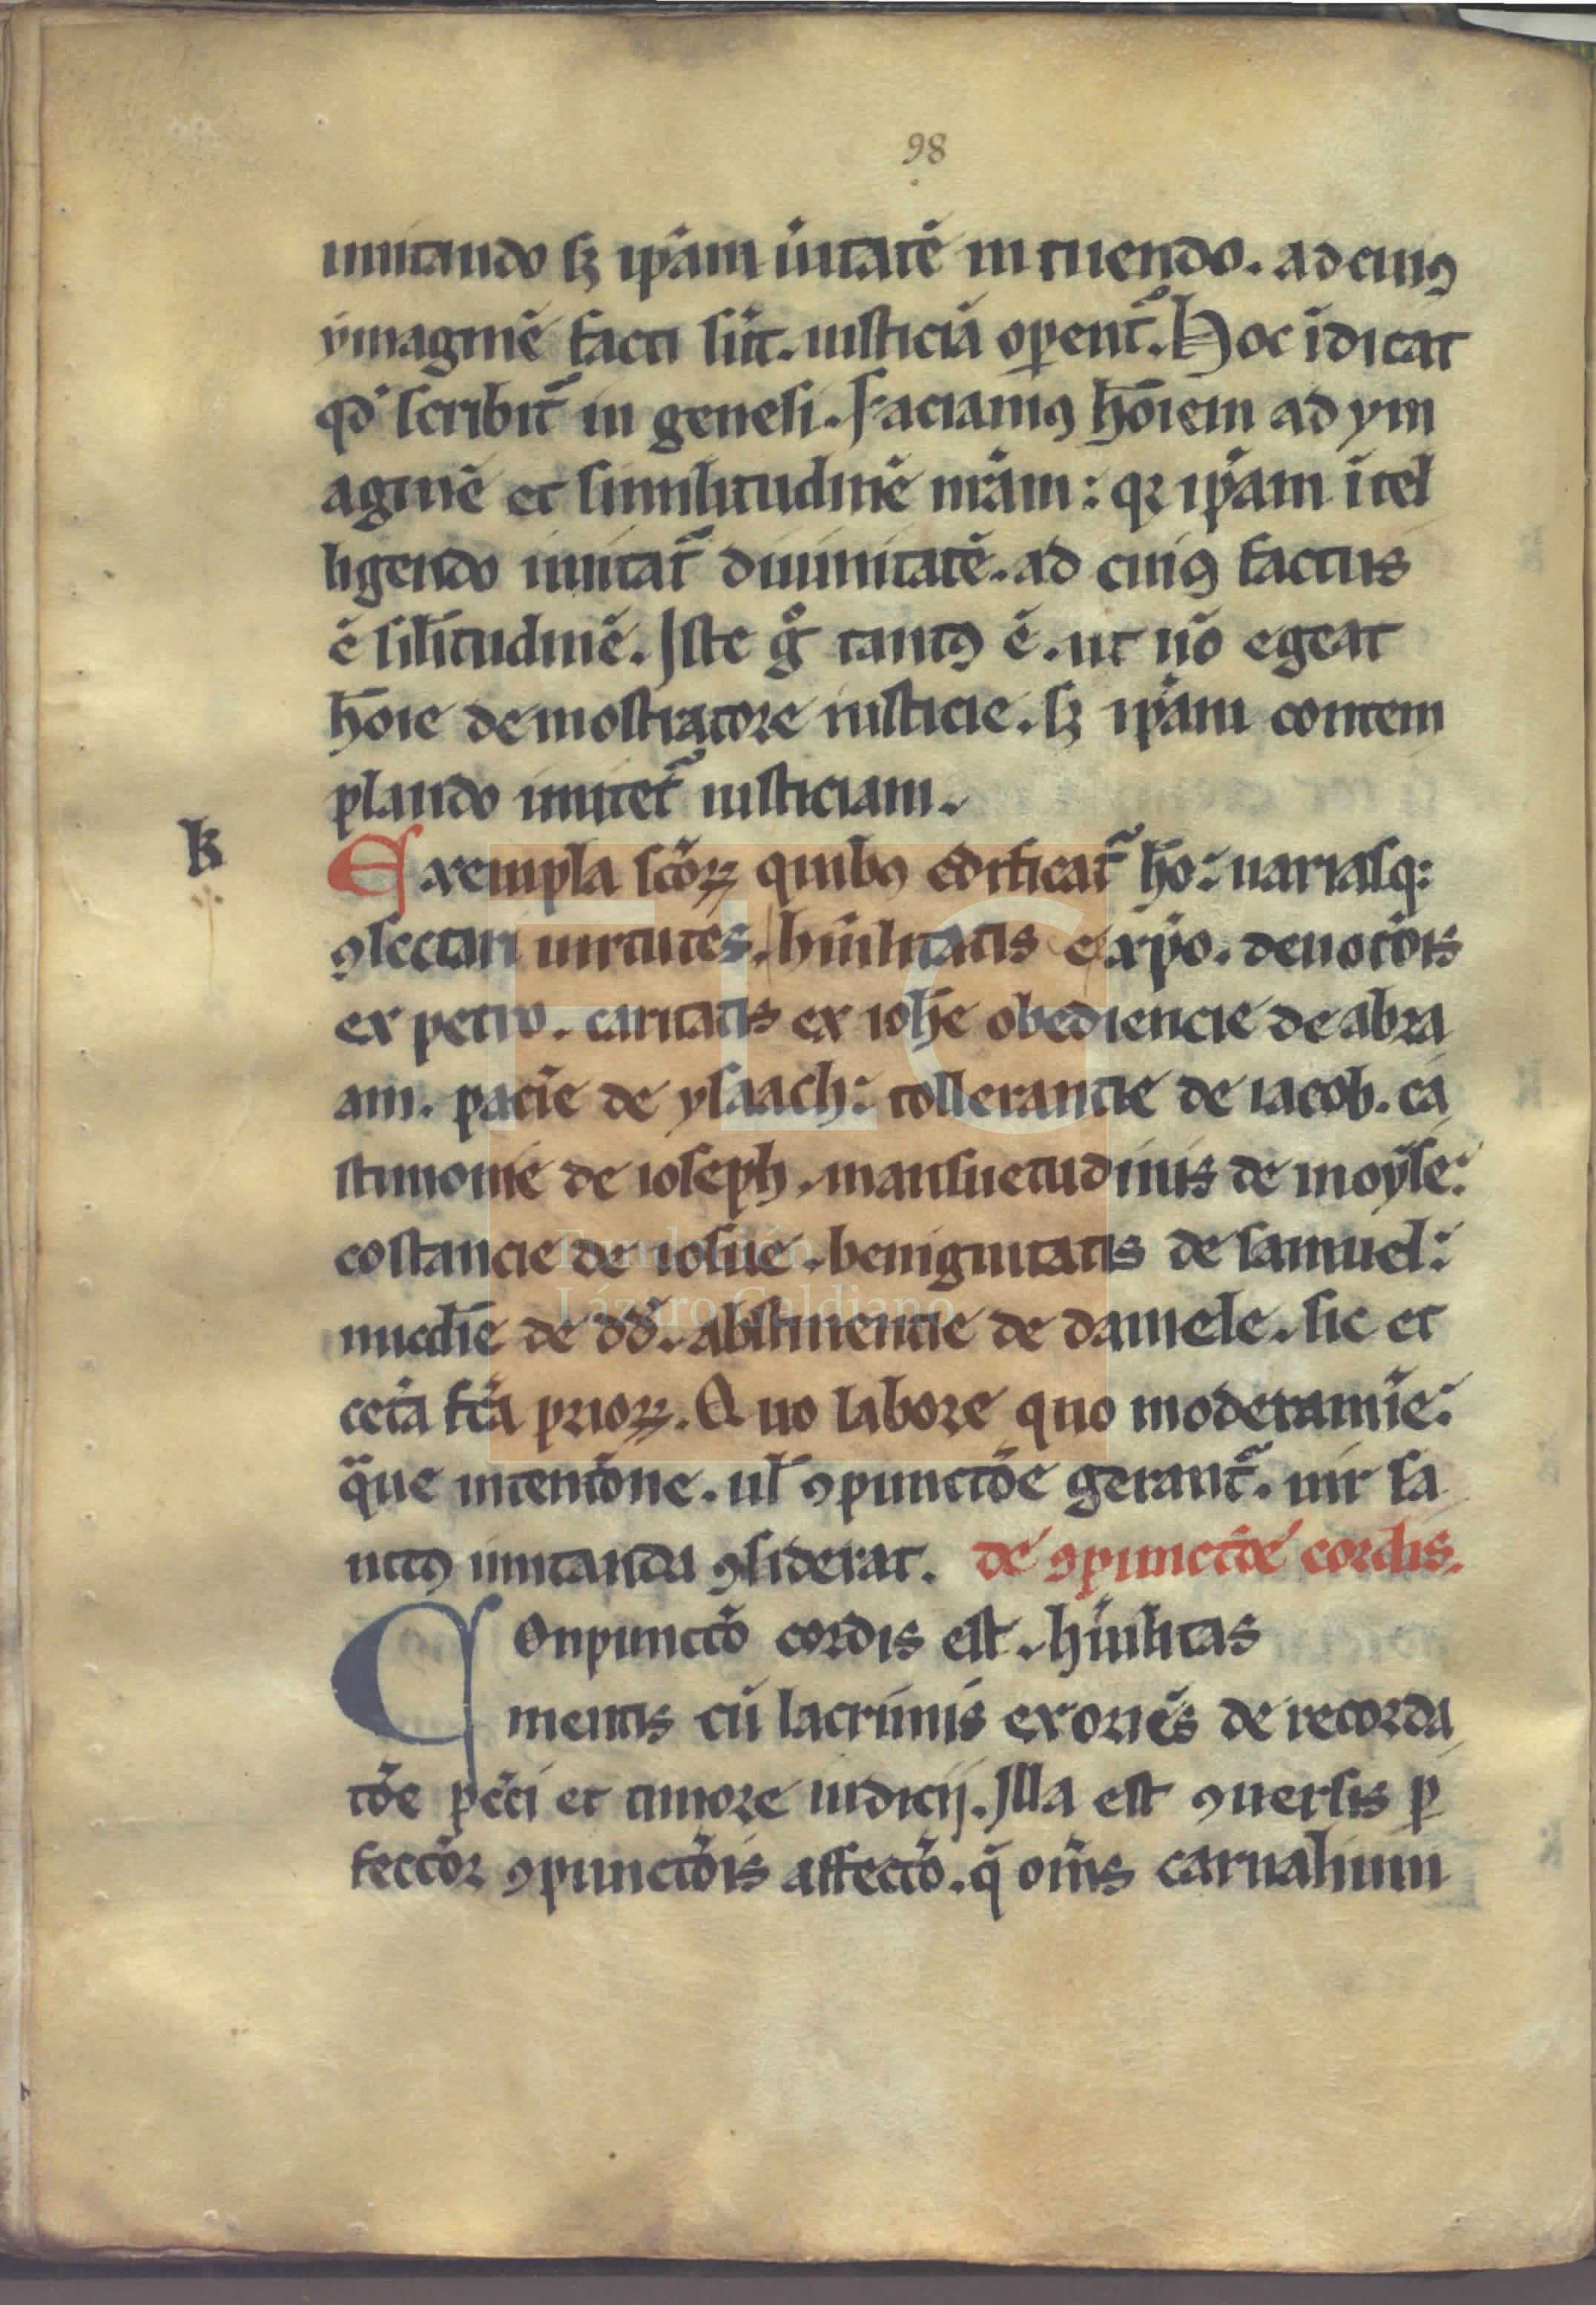 98
imitando sꝫ ip̃am ũitatẽ intuendo. ad cuiꝯ
ymaginẽ facti sũt. iusticiã operent᷑. Hoc ĩdicat
qđ scribit᷑ in genesi. Faciamꝯ hõiem ad ym
aginẽ et similitudinẽ nr̃am: qꝛ ip̃am ĩtel
ligendo imitat᷑ diuinitatẽ. ad cuiꝯ factus
ẽ silĩtudinẽ. Iste gͦ tantꝯ ẽ. ut nõ egeat
hõie demostratore iusticie. sꝫ ip̃am contem
plando imitet᷑ iusticiam.
k
Exempla sc̃oꝝ quibꝯ edificat᷑ hõ: uariasq:
ꝯsectari uirtutes. hũilitatis ex xp̃o. deuoc̃ois
ex petro. caritatis ex ioh̃e obediencie de abra
am. pac̃ie de ysaach: tollerantie de iacob. ca
stimonie de ioseph. mansuetudinis de moyse:
costancie de iosue. benignitatis de samuel:
mic̃die de dd̃. abstinentie de daniele. sic et
cet̃a fc̃a prioꝝ. Quo labore quo moderamĩe:
q̃ue intentõne. ul̃ ꝯpunctõe gerant᷑. uir sa
nctꝯ imitanda ꝯsiderat. de ꝯpunctõe cordis.
Conpunctõ cordis est. hũilitas
mentis cũ lacrimis exoriẽs de recorda
tõe pc̃ci et timore iudicij. Illa est ꝯuersis ꝑ
fectõr ꝯpunctõis affectõ. q̃ om̃is carnalium
Fundación
Lázaro Galdiano